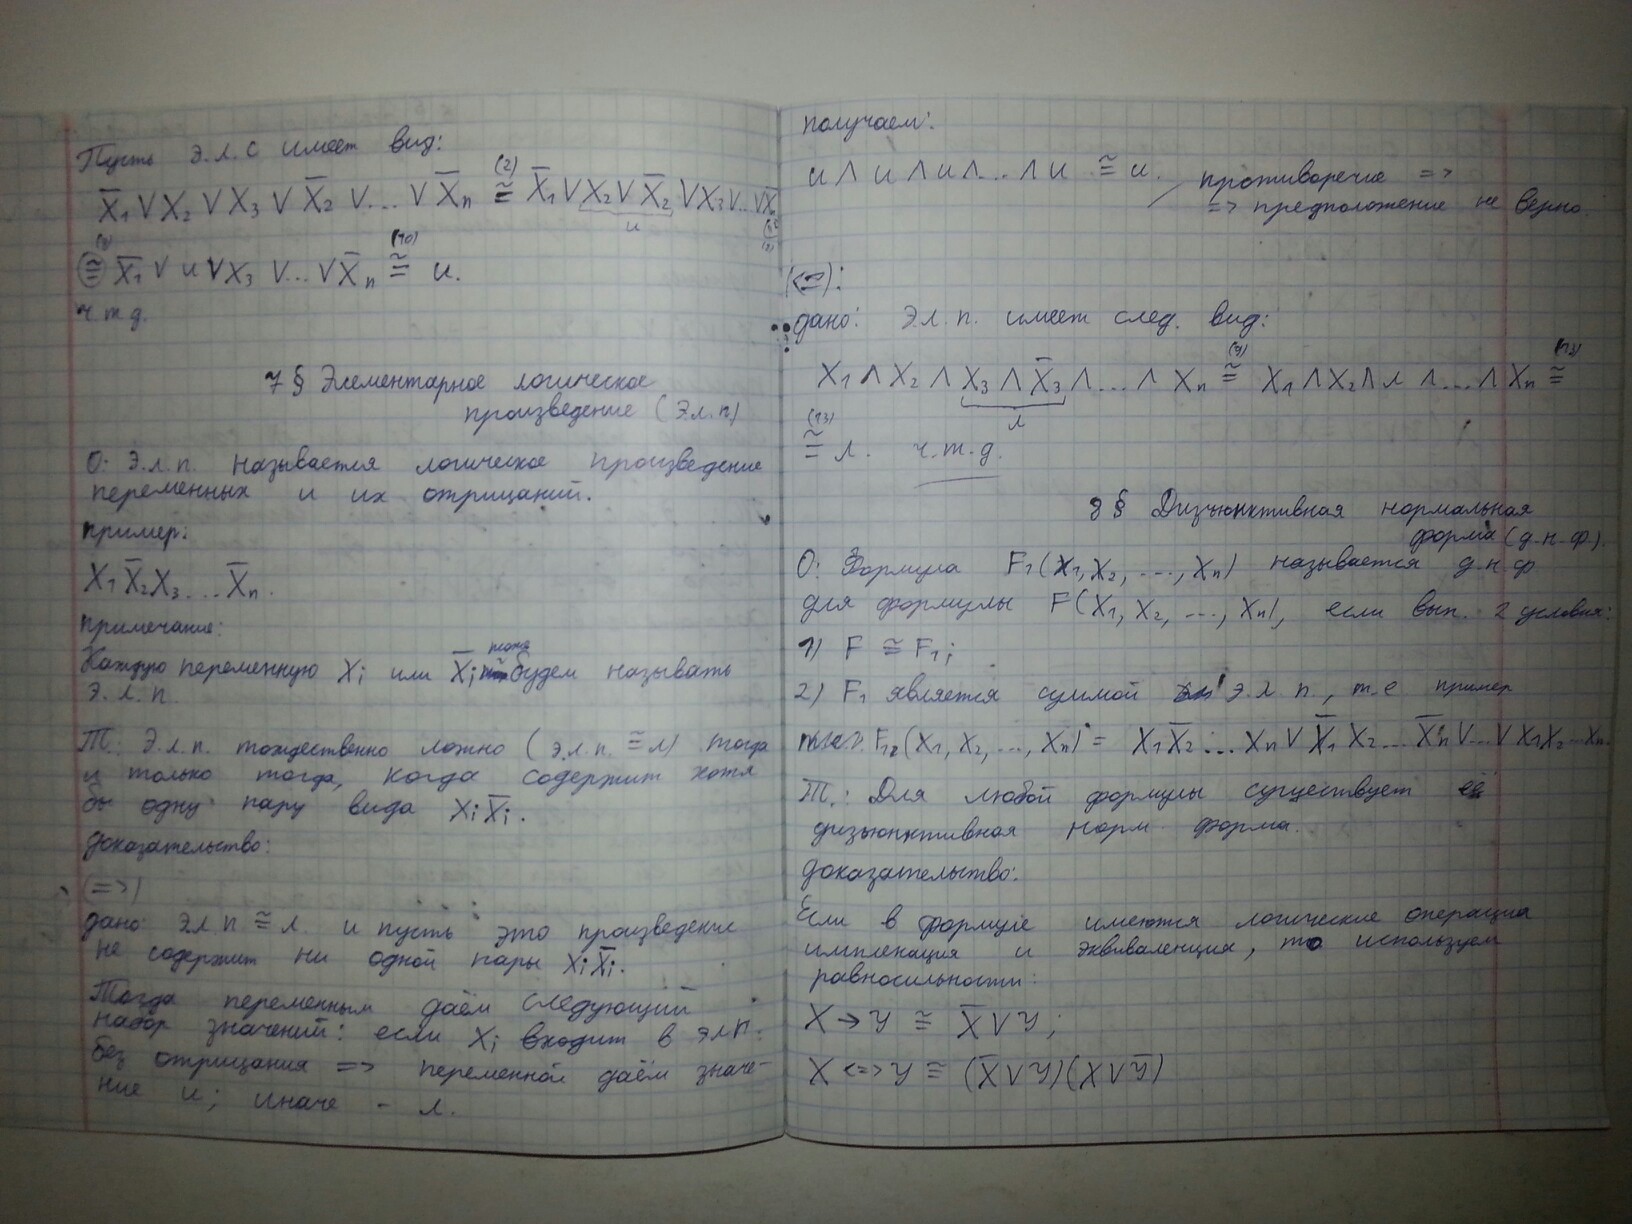 Пусть э.л.с имеет вид:
X̅₁ ∨ X₂ ∨ X₃ ∨ X̅₂ ∨ ... ∨ X̅ₙ ≅⁽²⁾ X̅₁ ∨ X₂ ∨ X̅₂ ∨ X₃ ∨ .. ∨ X̅ₙ
и
≅ X̅₁ ∨ и ∨ X₃ ∨ ... ∨ X̅ₙ ≅⁽¹⁰⁾ и.
ч.т.д.
7 § Элементарное логическое
произведение (Э.л.п)
О: Э.л.п. называется логическое произведение
переменных и их отрицаний.
пример:
X₁ X̅₂ X₃ ... X̅ₙ.
примечание:
Каждую переменную Xᵢ или X̅ᵢ тоже будем называть
э.л.п.
Т.: Э.л.п. тождественно ложно (э.л.п. ≅ л) тогда
и только тогда, когда содержит хотя
бы одну пару вида Xᵢ X̅ᵢ.
доказательство:
(=>)
дано: эл.п ≅ л. и пусть это произведение
не содержит ни одной пары Xᵢ X̅ᵢ.
Тогда переменным даём следующий
набор значений: если Xᵢ входит в элп.
без отрицания => переменной даём значе-
ние и; иначе - л.
получаем:
и ∧ и ∧ и ∧ ... ∧ и ≅ и.
противоречие =>
=> предположение не верно.
(<=):
дано: Э.л.п. имеет след. вид:
X₁ ∧ X₂ ∧ X₃ ∧ X̅₃ ∧ ... ∧ Xₙ ≅⁽⁹⁾ X₁ ∧ X₂ ∧ л ∧ ... ∧ Xₙ ≅⁽¹³⁾
л
≅⁽¹³⁾ л. ч.т.д.
8 § Дизъюнктивная нормальная
форма (д.н.ф.).
О: Формула F₁(X₁, X₂, ..., Xₙ) называется д.н.ф
для формулы F(X₁, X₂, ..., Xₙ), если вып. 2 условия:
1) F ≅ F₁;
2) F₁ является суммой э.л п., т.е пример
F₁(X₁, X₂, ..., Xₙ) = X₁ X̅₂ ... Xₙ ∨ X̅₁ X₂ ... X̅ₙ ∨ ... ∨ X₁ X₂ ... Xₙ.
Т.: Для любой формулы существует её
дизъюнктивная норм. форма.
доказательство:
Если в формуле имеются логические операции
импликация и эквиваленция, то используем
равносильности:
X → Y ≅ X̅ ∨ Y;
X <=> Y ≅ (X̅ ∨ Y)(X ∨ Y̅)